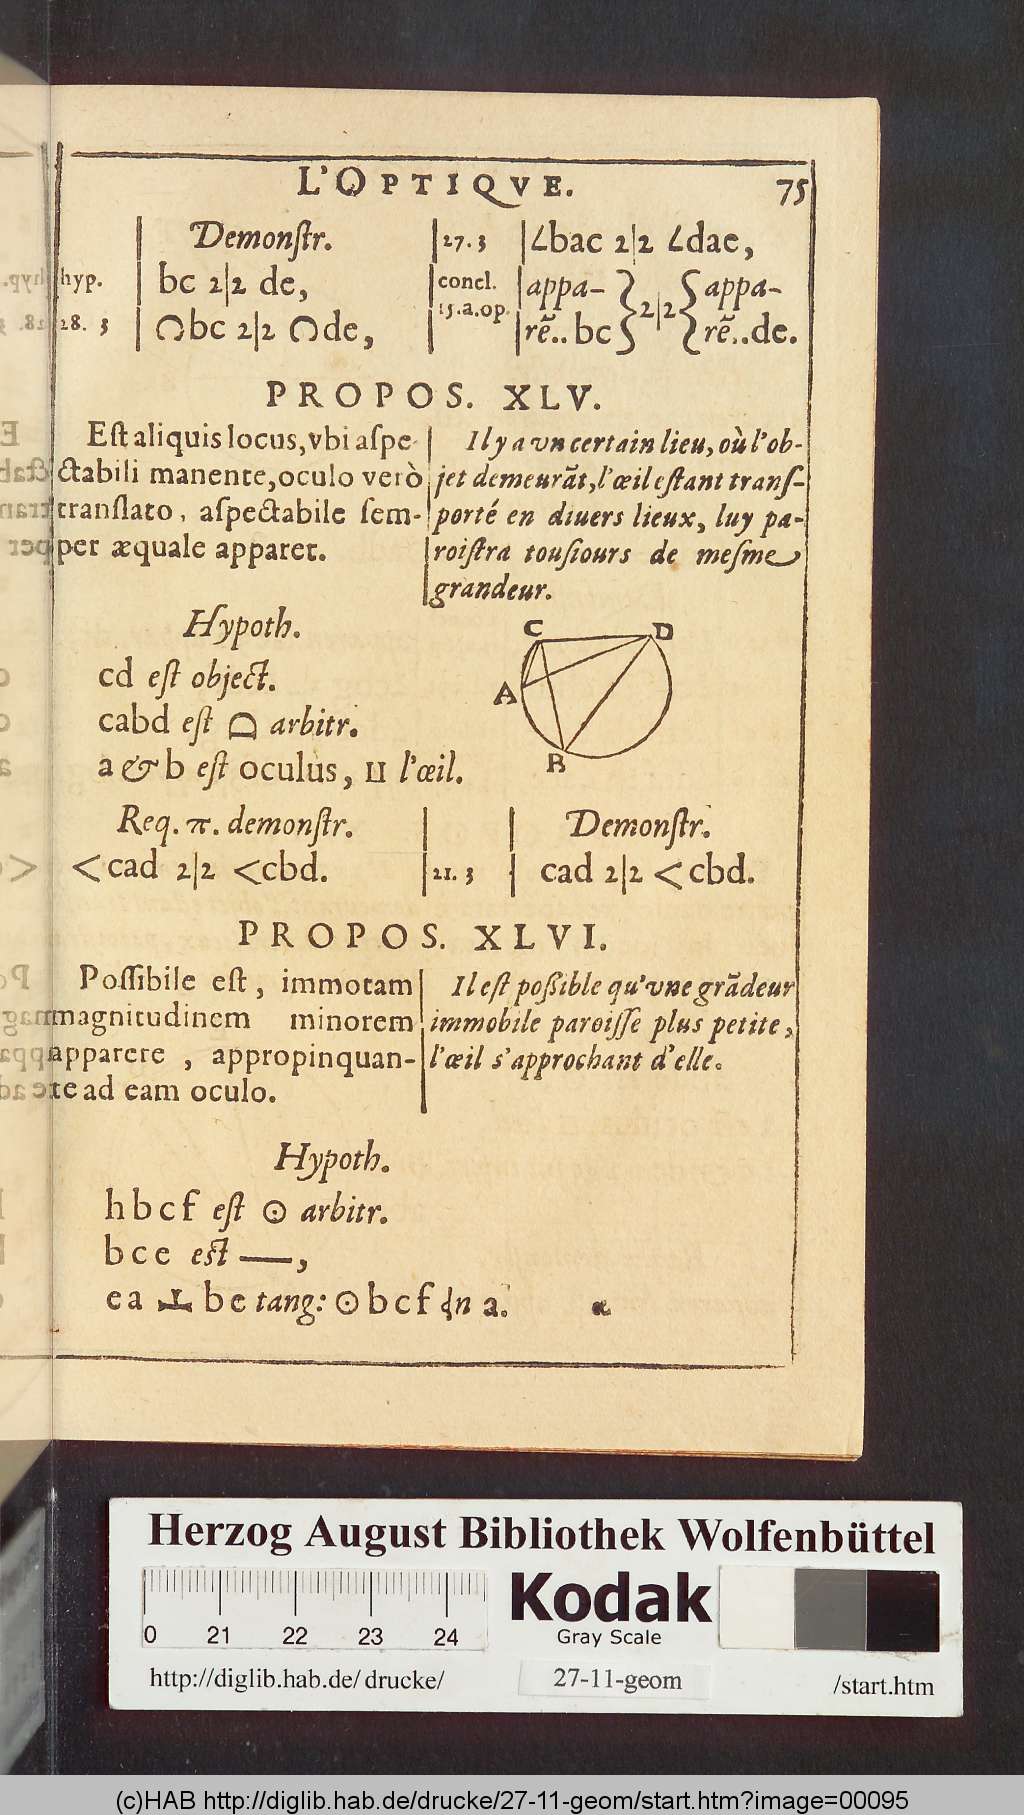 L'OPTIQVE. 75
Demonſtr.
hyp. | bc 2|2 de,
28. 3 | ◠bc 2|2 ◠de,
27. 3 | ∠bac 2|2 ∠dae,
concl. | appa- } 2|2 { appa-
15.a.op. | rẽ.. bc } { rẽ..de.
PROPOS. XLV.
Eſt aliquis locus, vbi aſpe-
ctabili manente, oculo verò
tranſlato, aſpectabile ſem-
per æquale apparet.
Il y a vn certain lieu, où l'ob-
jet demeurãt, l'œil eſtant tranſ-
porté en diuers lieux, luy pa-
roiſtra touſiours de meſme
grandeur.
Hypoth.
cd eſt object.
cabd eſt ⌓ arbitr.
a & b eſt oculus, ⊔ l'œil.
C D
A
B
Req. π. demonſtr.
<cad 2|2 <cbd.
Demonſtr.
21. 3 | cad 2|2 <cbd.
PROPOS. XLVI.
Poſſibile eſt, immotam
magnitudinem minorem
apparere, appropinquan-
te ad eam oculo.
Il eſt poßible qu'vne grãdeur
immobile paroiſſe plus petite,
l'œil s'approchant d'elle.
Hypoth.
hbcf eſt ⊙ arbitr.
bce eſt —,
ea ⊥ be tang: ⊙ bcf ɖn a. a
Herzog August Bibliothek Wolfenbüttel
0 21 22 23 24
Kodak
Gray Scale
http://diglib.hab.de/drucke/ 27-11-geom /start.htm
(c)HAB http://diglib.hab.de/drucke/27-11-geom/start.htm?image=00095